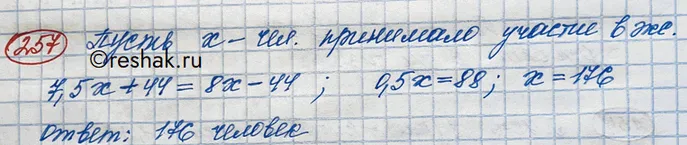 257 Пусть x - чел. принимало участие в экс.
©reshak.ru
7,5x + 44 = 8x - 44 ; 0,5x = 88; x = 176
ответ: 176 человек